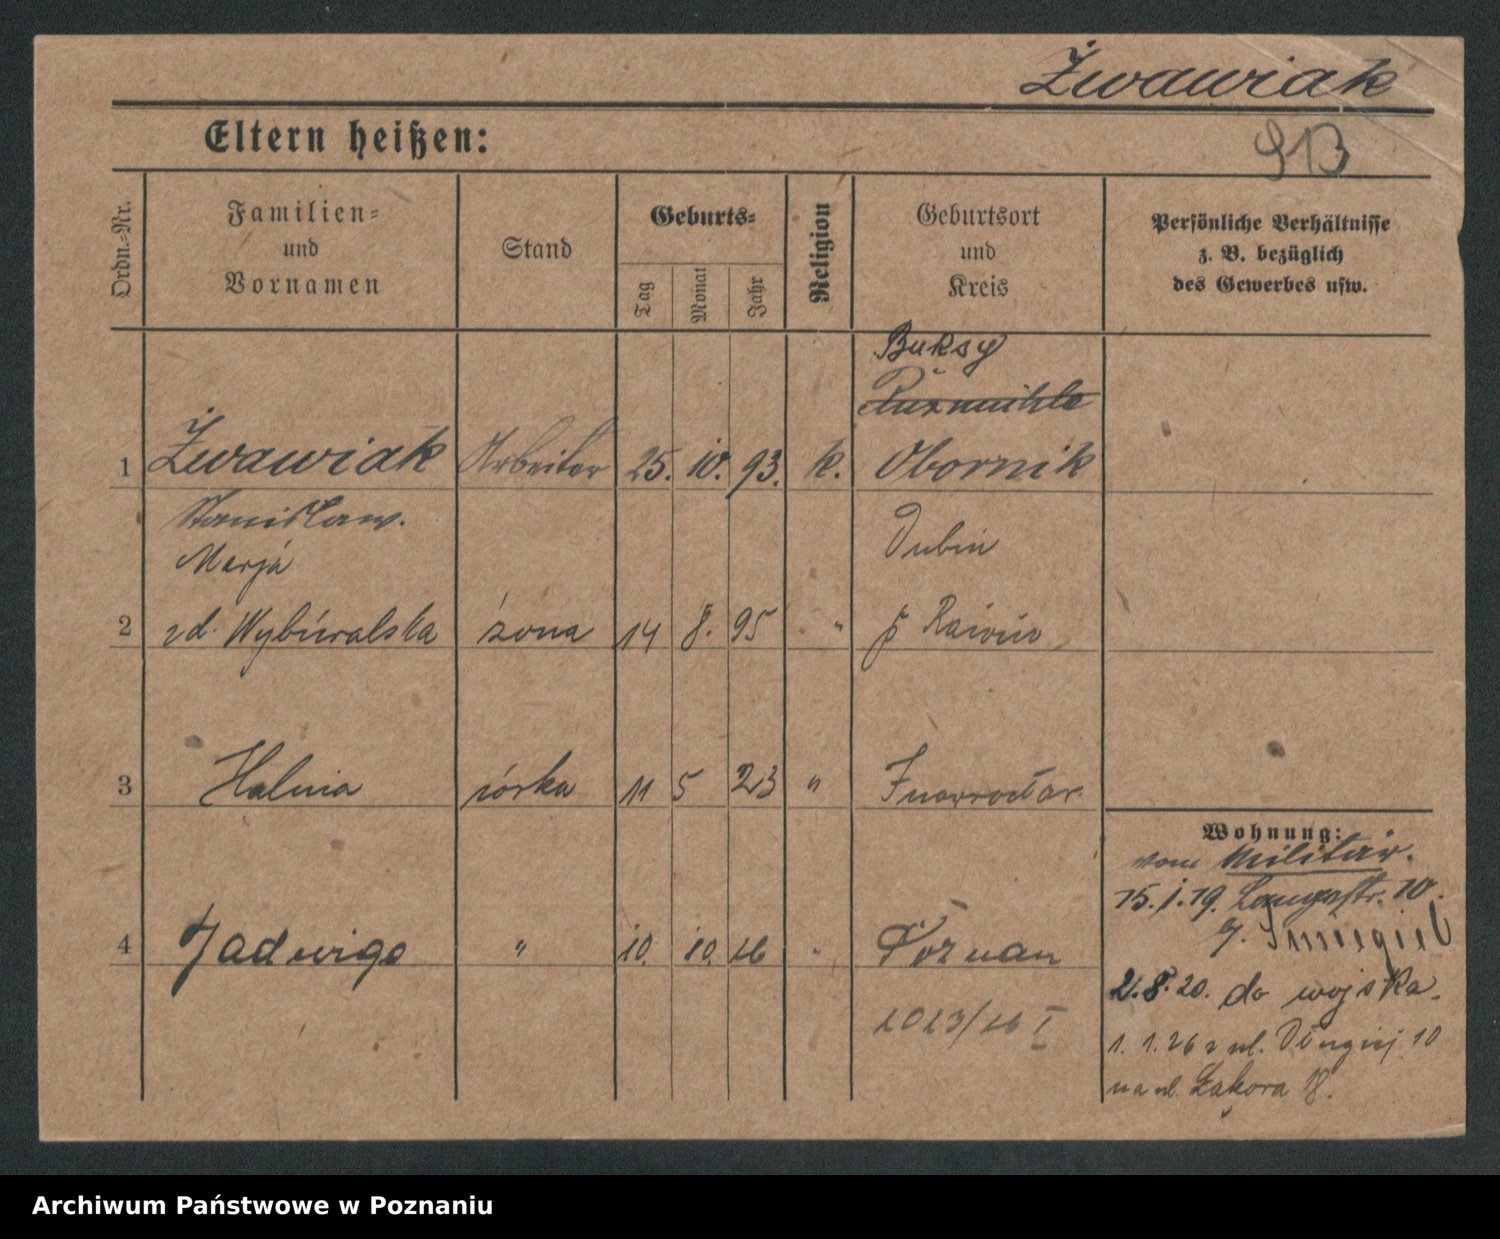 Żwawiak
Eltern heißen:
913
Ordn.-Nr.
Familien-
und
Vornamen
Stand
Geburts-
Tag
Monat
Jahr
Religion
Geburtsort
und
Kreis
Persönliche Verhältnisse
z. B. bezüglich
des Gewerbes usw.
Buksy
1 Żwawiak Arbeiter 25. 10. 93. k. Obornik
Stanisław.
Marja
Dubin
2 zd. Wybúwalska żona 14 8. 95 "
3 Halina córka 11 5 23 "
4 Jadwiga " 10. 10. 16 " Poznan
1013/16 I
Wohnung:
vom Militär.
15.1.19. Langestr. 10.
2.8.20. do wojska.
1. 1. 26 z ul. Długiej 10
na ul. Łąkora 18.
Archiwum Państwowe w Poznaniu